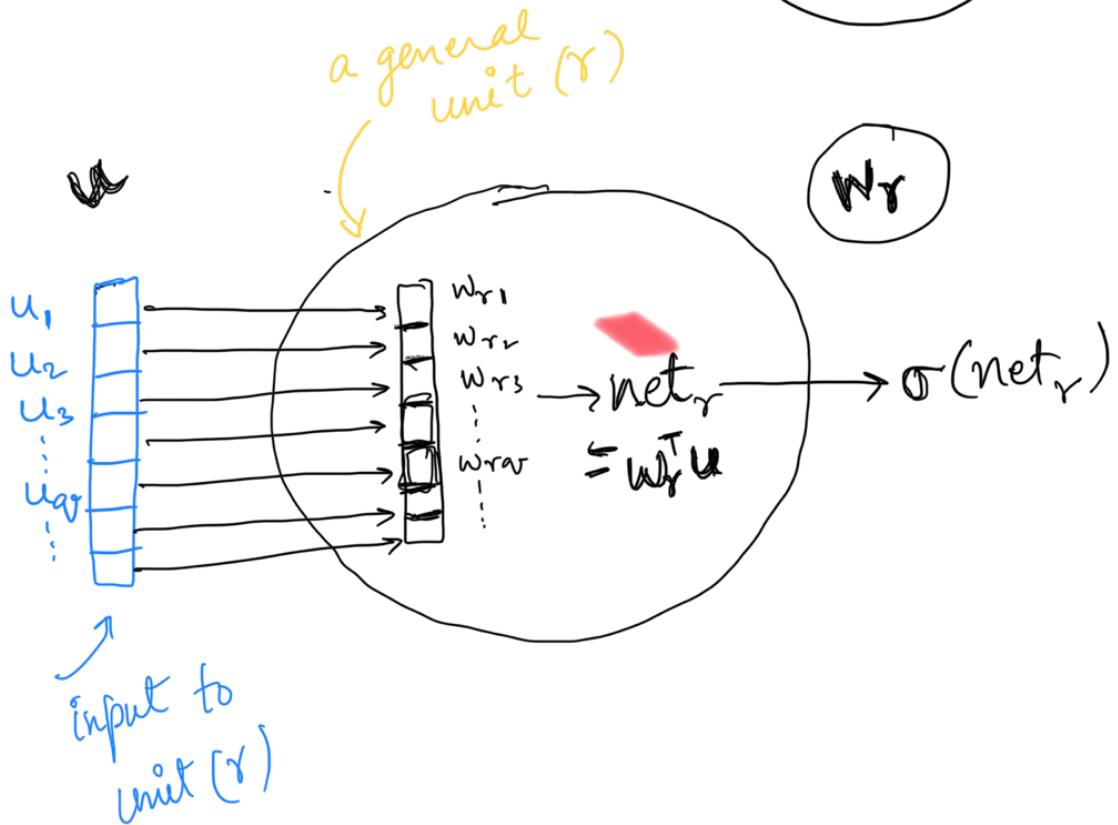 a general
unit (r)
u
W_r
u_1
u_2
u_3
u_q
w_r1
w_r2
w_r3
w_rq
net_r
= w_r^T u
σ(net_r)
input to
unit (r)